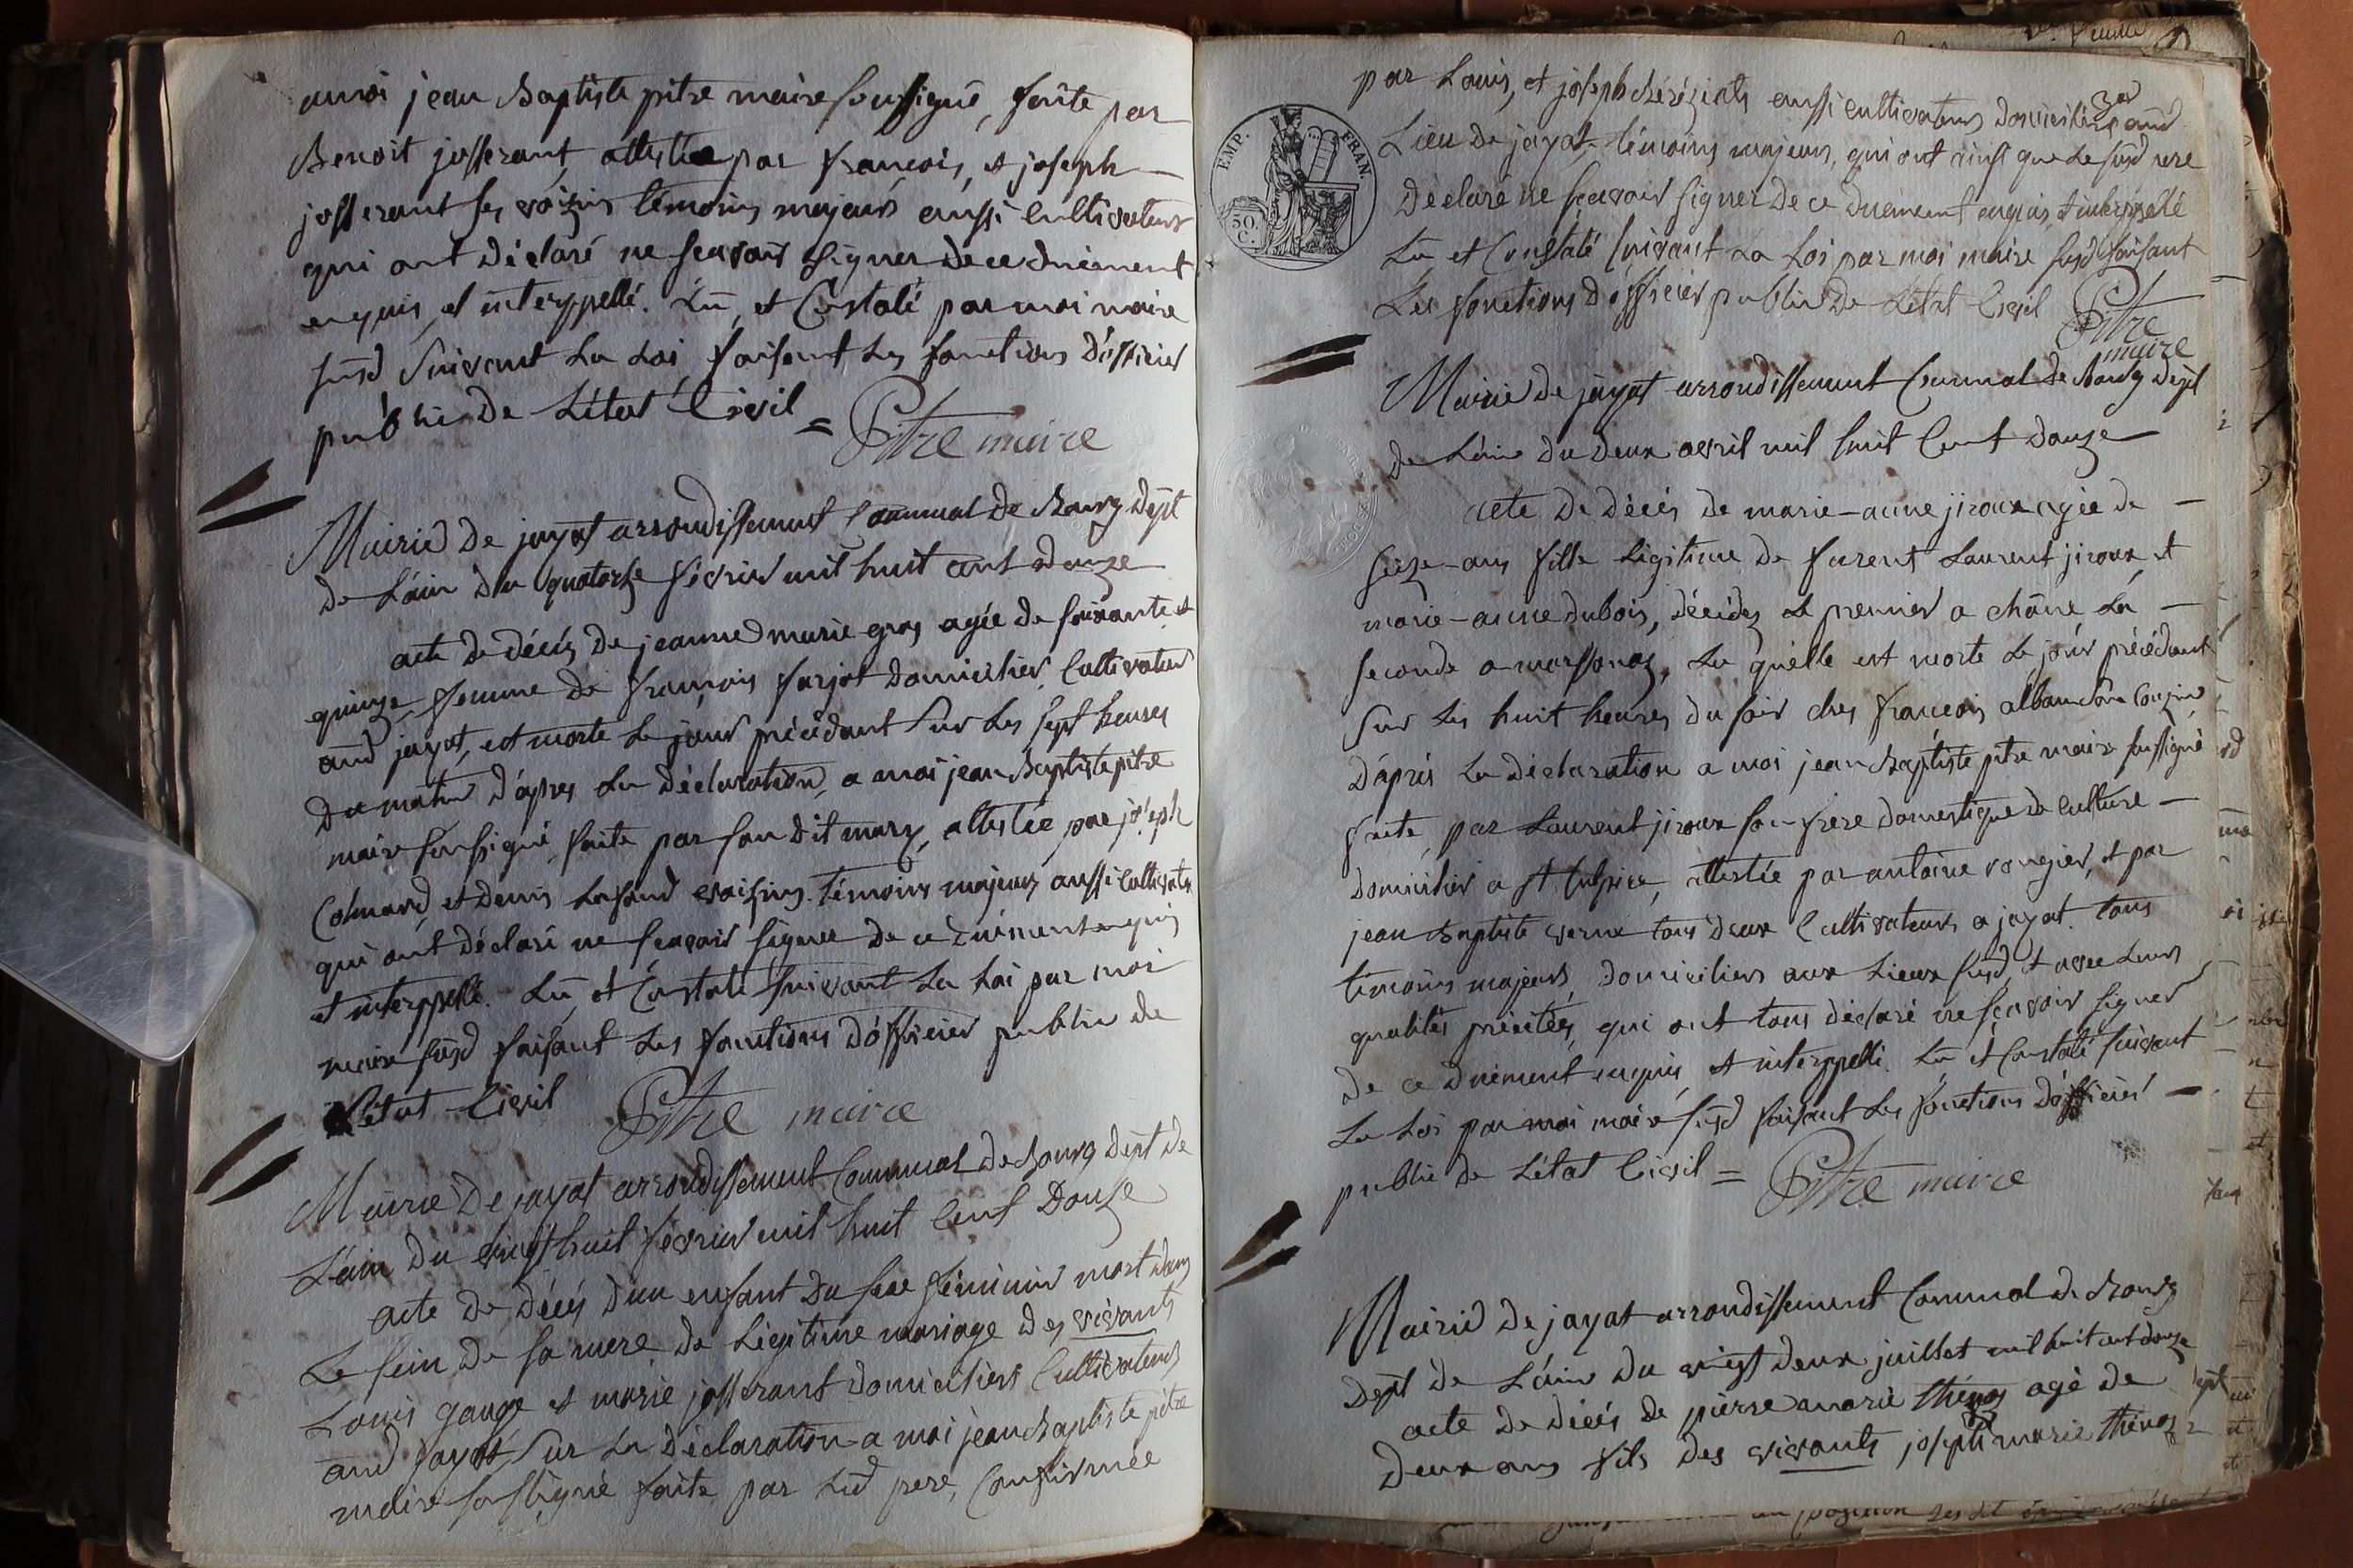 amoi jean Baptiste pitre maire soussigné, faite par
Benoit josserant, attestée par francois, et joseph
josserant ses voizins témoins majeurs aussi cultivateurs
qui ont déclaré ne scavoir signer de ce duement
enquis, et interppellé. Lu, et Constaté par moi maire
susd suivant La Loi faisant Les fonctions d'officier
public de L'état Civil =
Pitre maire
Mairie De jayat arrondissement Communal de Bourg dept
de L'ain du quatorze fevrier mil huit cent douze
acte de décés de jeanne marie gros agée de soixante et
quinze, femme de francois farjot domicilier Cultivateur
aud jayat, est morte Le jour précédant sur Les sept heures
du matin d'apres La déclaration, a moi jean Baptiste pitre
maire soussigné, faite par son dit mary, attestée par joseph
Colmard, et denis voizins témoins majeurs aussi cultivate
qui ont déclaré ne scavoir signer de ce duement enquis
et interppellé. Lu, et Constaté suivant La Loi par moi
maire susd faisant Les fonctions d'officier public de
L'état Civil
Pitre maire
Mairie De jayat arrondissement Communal de Bourg dept de
L'ain du vingt huit fevrier mil huit Cent Douze
acte de décés d'un enfant du sexe féminin mort dans
Le sein de sa mere de Légitime mariage des vivants
Louis gauge et marie josserant domiciliers Cultivateurs
aud jayat sur La déclaration a moi jean Baptiste pitre
maire soussigné faite par Lud pere, Confirmée
par Louis, et joseph aussi cultivateurs domiciliers aud
Lieu de jayat témoins majeurs, qui ont ainsi que Le susd pere
Déclaré ne scavoir signer De ce duement enquis, et interppellé
Lu et Constaté suivant La Loi par moi maire susd faisant
Les fonctions d'officier public De L'état Civil
Pitre
maire
EMP. FRAN.
50. C.
Mairie De jayat arrondissement Communal de Bourg dept
de L'ain du deux avril mil huit Cent douze
acte De décés De marie-anne jiroux agée de
seize ans fille Légitime de Laurent jiroux, et
marie-anne dubois, décédés Le premier a chane La
seconde a marsonas, La quelle est morte Le jour précédant
sur Les huit heures du soir ches francois
D'aprés La declaration a moi jean Baptiste pitre maire soussigné
faite, par Laurent jiroux son frere domestique de Culture
domicilier a st Sulpice, attestée par antoine rongier, et par
jean Baptiste verne tous deux Cultivateurs a jayat. tous
témoins majeurs, domiciliers aux Lieux susd, et avec Leurs
qualités précitées, qui ont tous déclaré ne scavoir signer
de ce duement enquis, et interppellé. Lu et Constaté suivant
La Loi par moi maire susd faisant Les fonctions D'officier
public de L'état Civil =
Pitre maire
Mairie De jayat arrondissement Communal de Bourg
dept de L'ain du vingt deux juillet mil huit cent douze
acte de décés de pierre marie thénoz agé de
deux ans fils des vivants joseph marie thénoz